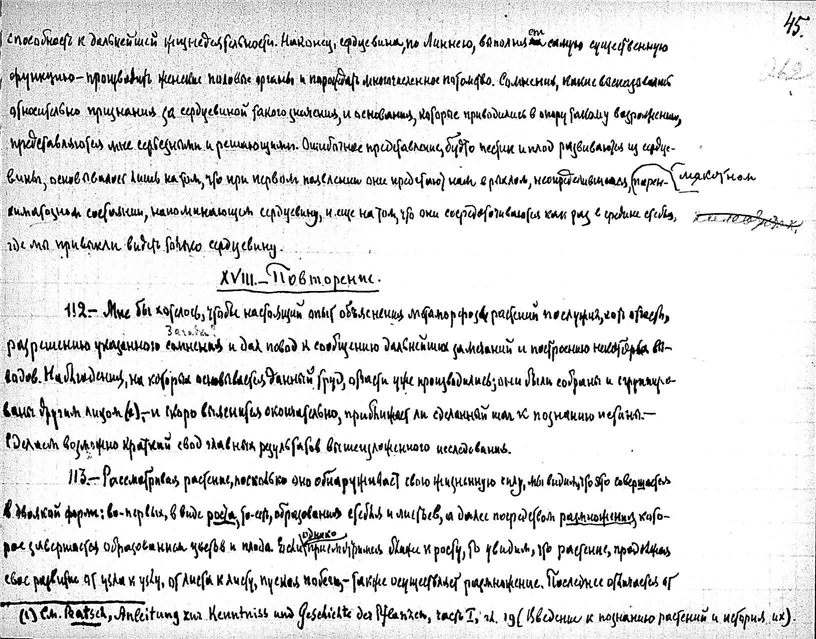 45.
262
способность к дальнейшей жизнедеятельности. Наконец, сердцевина, по Линнею, выполняет самую существенную
функцию – производить женские половые органы и порождать многочисленное потомство. Сомнения, какие высказывались
относительно признания за сердцевиной такого значения, и основания, которые приводились в опору такому возражению,
представляются мне серьезными и решающими. Ошибочное представление, будто пестик и плод развиваются из сердце-
вины, основывалось лишь на том, что при первом появлении они предстают нам в рыхлом, неопределившемся, (парен- мякотном
химатозном состоянии, напоминающем сердцевину, и еще на том, что они сосредоточиваются как раз в средине стебля,
где мы привыкли видеть только сердцевину.
XVIII. – Повторение.
112. – Мне бы хотелось, чтобы настоящий опыт объяснения метаморфозы растений послужил, хоть отчасти,
загадки?
разрешению указанного сомнения и дал повод к сообщению дальнейших замечаний и построению некоторых вы-
водов. Наблюдения, на которых основывается данный труд, отчасти уже производились; они были собраны и сгруппиро-
ваны другим лицом (1), – и скоро выяснится окончательно, приближает ли сделанный шаг к познанию истины. –
Сделаем возможно краткий свод главных результатов вышеизложенного исследования.
113. – Рассматривая растение, поскольку оно обнаруживает свою жизненную силу, мы видим, что это совершается
в двоякой форме: во-первых, в виде роста, то-есть, образования стебля и листьев, а далее посредством размножения, кото-
рое завершается образованием цветов и плода. Если однако присмотримся ближе к росту, то увидим, что растение, продолжая
свое развитие от узла к узлу, от листа к листу, пуская побеги, – также осуществляет размножение. Последнее отличается от
(1) См. Batsch, Anleitung zur Kenntniss und Geschichte der Pflanzen, часть I, гл. 19 (Введение к познанию растений и история их).